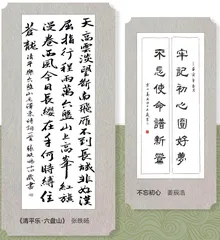 天高雲淡望斷南飛雁不到長城非好漢
屈指行程兩萬六盤山上高峰紅旗
漫卷西風今日長纓在手何時縛住
蒼龍 清平樂六盤山毛澤東詞
《清平乐·六盘山》 张
牢記初心圓好夢
不忘使命譜新篇
不忘初心 姜振浩